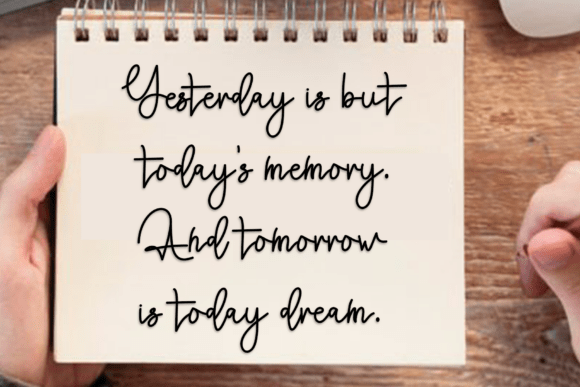 Yesterday is but
today's memory.
And tomorrow
is today dream.